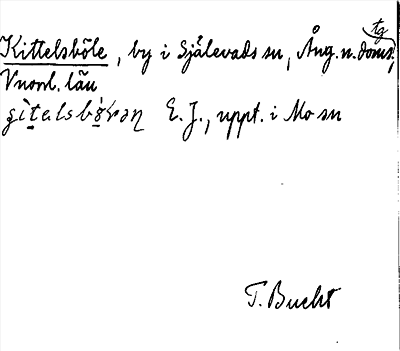 Kittelsböle, by i Själevads sn, Ång. n. doms. tg,
Vnorrl. län
E. J., uppt. i Mo sn
T. Bucht